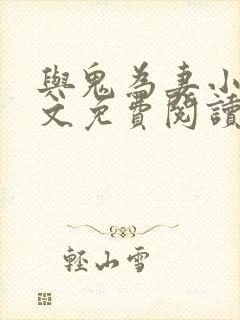 與鬼為妻小
文免費閱讀
輕山雪